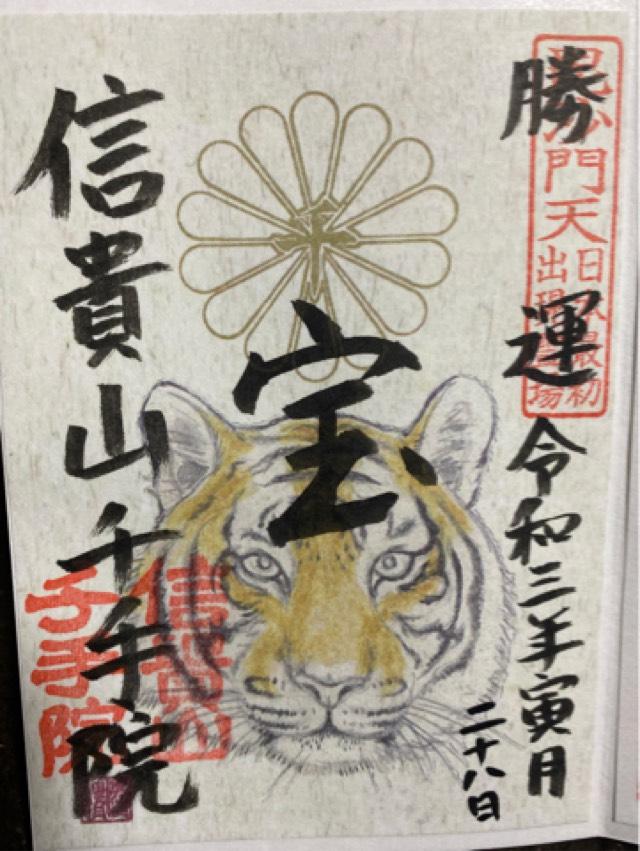 勝運
令和三年寅月
二十八日
毘沙門天
日本最初
出現霊場
宝
信貴山千手院
信貴山
千手院